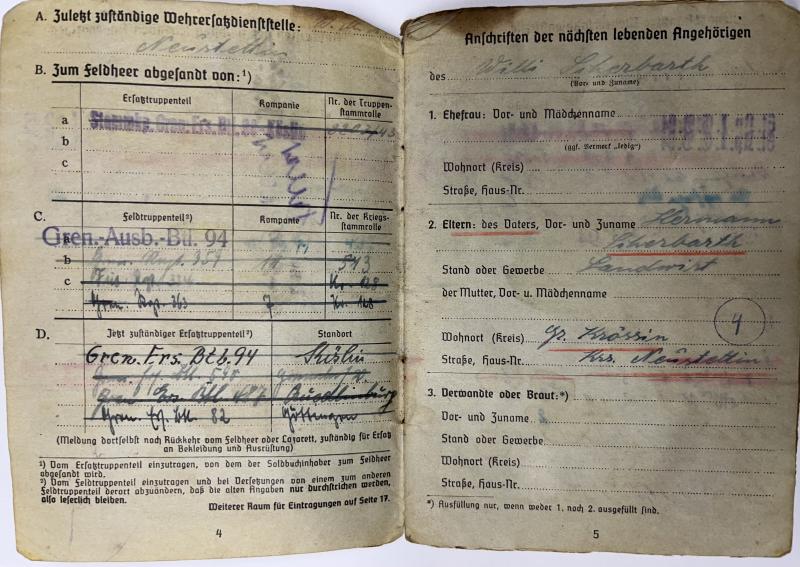 A. Zuletzt zuständige Wehrersatzdienststelle:
Neustettin
B. Zum Feldheer abgesandt von:¹)
Ersatztruppenteil Kompanie Nr. der Truppen-
stammrolle
a Stammkp. Gren. Ers. Btl.
b
c
C. Feldtruppenteil²) Kompanie Nr. der Kriegs-
stammrolle
Gren.-Ausb.-Btl. 94
a
b 543
c Nr. 128
Gren. Rgt. 363 7 Nr. 128
D. Jetzt zuständiger Ersatztruppenteil²) Standort
Gren. Ers. Btl. 94 Köslin
Quedlinburg
Gren. Ers. Btl. 82 Göttingen
(Meldung dortselbst nach Rückkehr vom Feldheer oder Lazarett, zuständig für Ersatz
an Bekleidung und Ausrüstung)
¹) Vom Ersatztruppenteil einzutragen, von dem der Soldbuchinhaber zum Feldheer
abgesandt wird.
²) Vom Feldtruppenteil einzutragen und bei Versetzungen von einem zum anderen
Feldtruppenteil derart abzuändern, daß die alten Angaben nur durchstrichen werden,
also leserlich bleiben.
Weiterer Raum für Eintragungen auf Seite 17.
4
Anschriften der nächsten lebenden Angehörigen
des Willi Scherbarth
(Vor- und Zuname)
1. Ehefrau: Vor- und Mädchenname
(ggf. Vermerk „ledig")
Wohnort (Kreis)
Straße, Haus-Nr.
2. Eltern: des Vaters, Vor- und Zuname Hermann
Scherbarth
Stand oder Gewerbe Landwirt
der Mutter, Vor- u. Mädchenname
4
Wohnort (Kreis) Gr. Krössin
Straße, Haus-Nr. Krs. Neustettin
3. Verwandte oder Braut:*)
Vor- und Zuname
Stand oder Gewerbe
Wohnort (Kreis)
Straße, Haus-Nr.
*) Ausfüllung nur, wenn weder 1. noch 2. ausgefüllt sind.
5